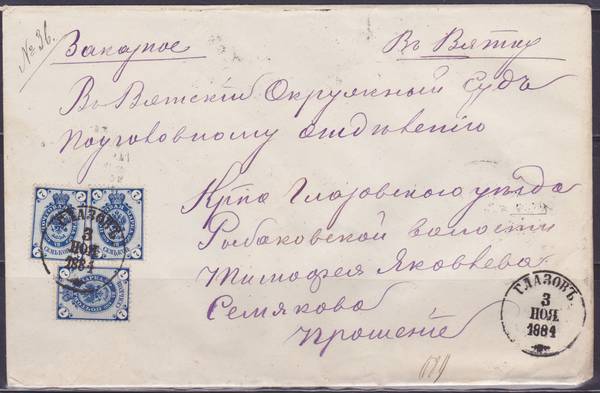 № 36.
Заказное
Въ Вятку
Въ Вятскiй Окружный Судъ
по уголовному отдѣленiю
Кр-на Глазовского уѣзда
Рыбаковской волости
Тимофея Яковлева
Семякова
Прошенiе
ГЛАЗОВЪ
3
НОЯ
1884
ГЛАЗОВЪ.
3
НОЯ
1884
7
7